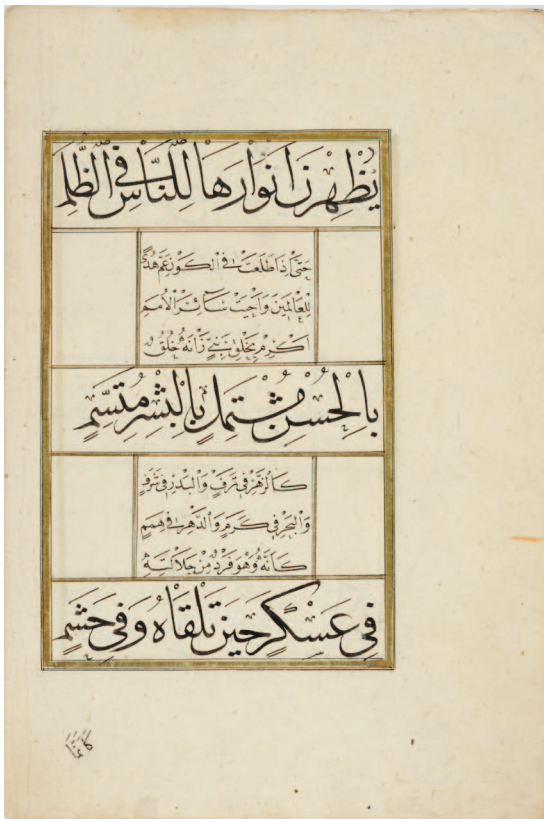 يُظْهِرْنَ اَنْوَارَهَا لِلنَّاسِ فِي الظُّلَمِ
حَتّٰى اِذَا طَلَعَتْ فِي الْكَوْنِ عَمَّ هُدًى
لِلْعَالَمِينَ وَاَحْيَتْ سَآئِرَ الْاُمَمِ
اَكْرِمْ بِخَلْقِ نَبِيٍّ زَانَهُ خُلُقٌ
بِالْحُسْنِ مُشْتَمِلٍ بِالْبِشْرِ مُتَّسِمٍ
كَالزَّهْرِ فِي تَرَفٍ وَالْبَدْرِ فِي شَرَفٍ
وَالْبَحْرِ فِي كَرَمٍ وَالدَّهْرِ فِي هِمَمٍ
كَاَنَّهُ وَهُوَ فَرْدٌ مِنْ جَلَالَتِهِ
فِي عَسْكَرٍ حِينَ تَلْقَاهُ وَفِي حَشَمٍ
كَاَنَّمَا